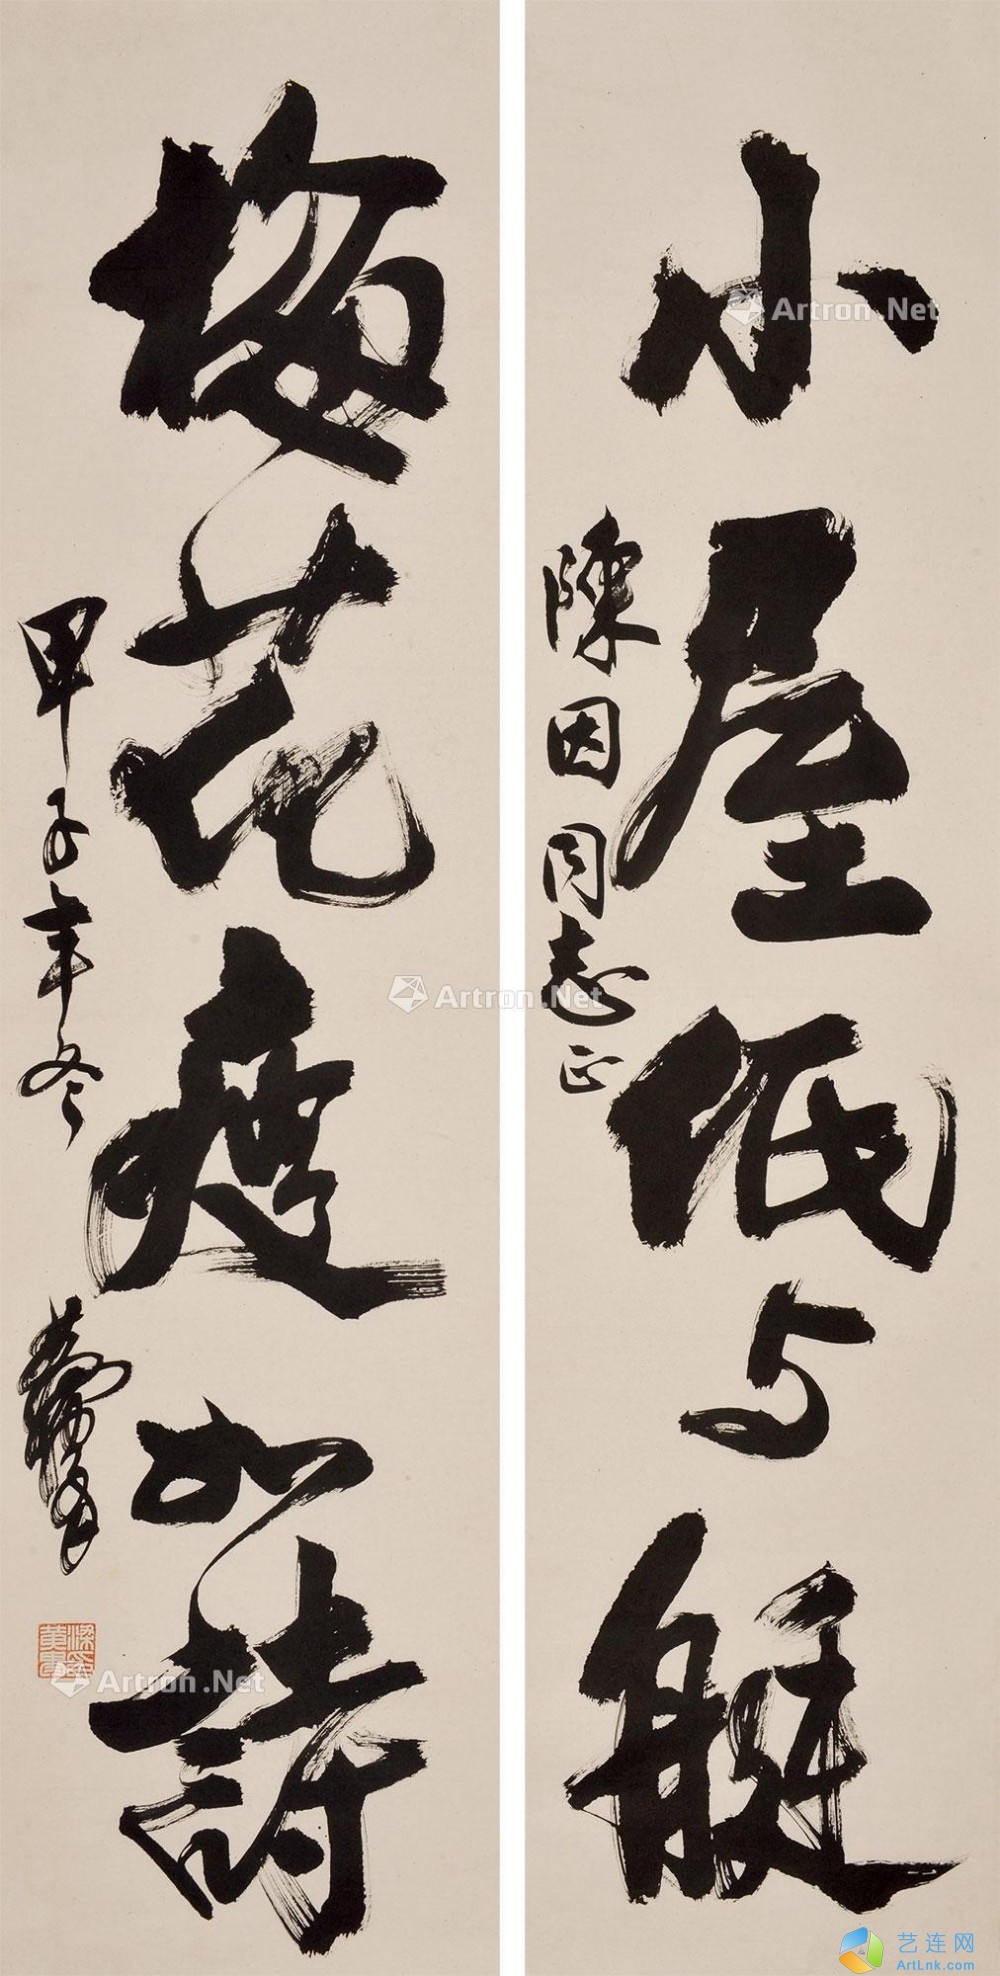 小屋低与艇
陳因同志正
梅花瘦如詩
甲子年冬
黄胄
Artron.Net
Artron.Net
Artron.Net
艺连网
ArtLnk.com